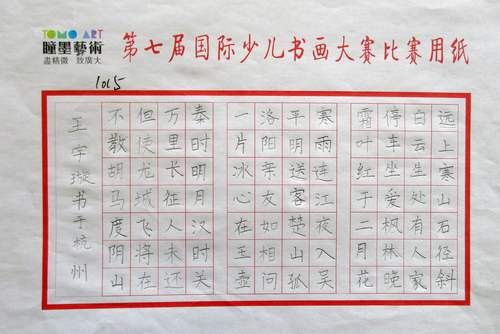 TOMO ART
瞳墨藝術
盡精微 致廣大
第七届国际少儿书画大赛比赛用纸
1015
远上寒山石径斜
白云生处有人家
停车坐爱枫林晚
霜叶红于二月花
寒雨连江夜入吴
平明送客楚山孤
洛阳亲友如相问
一片冰心在玉壶
秦时明月汉时关
万里长征人未还
但使龙城飞将在
不教胡马度阴山
王宇璇书于杭州